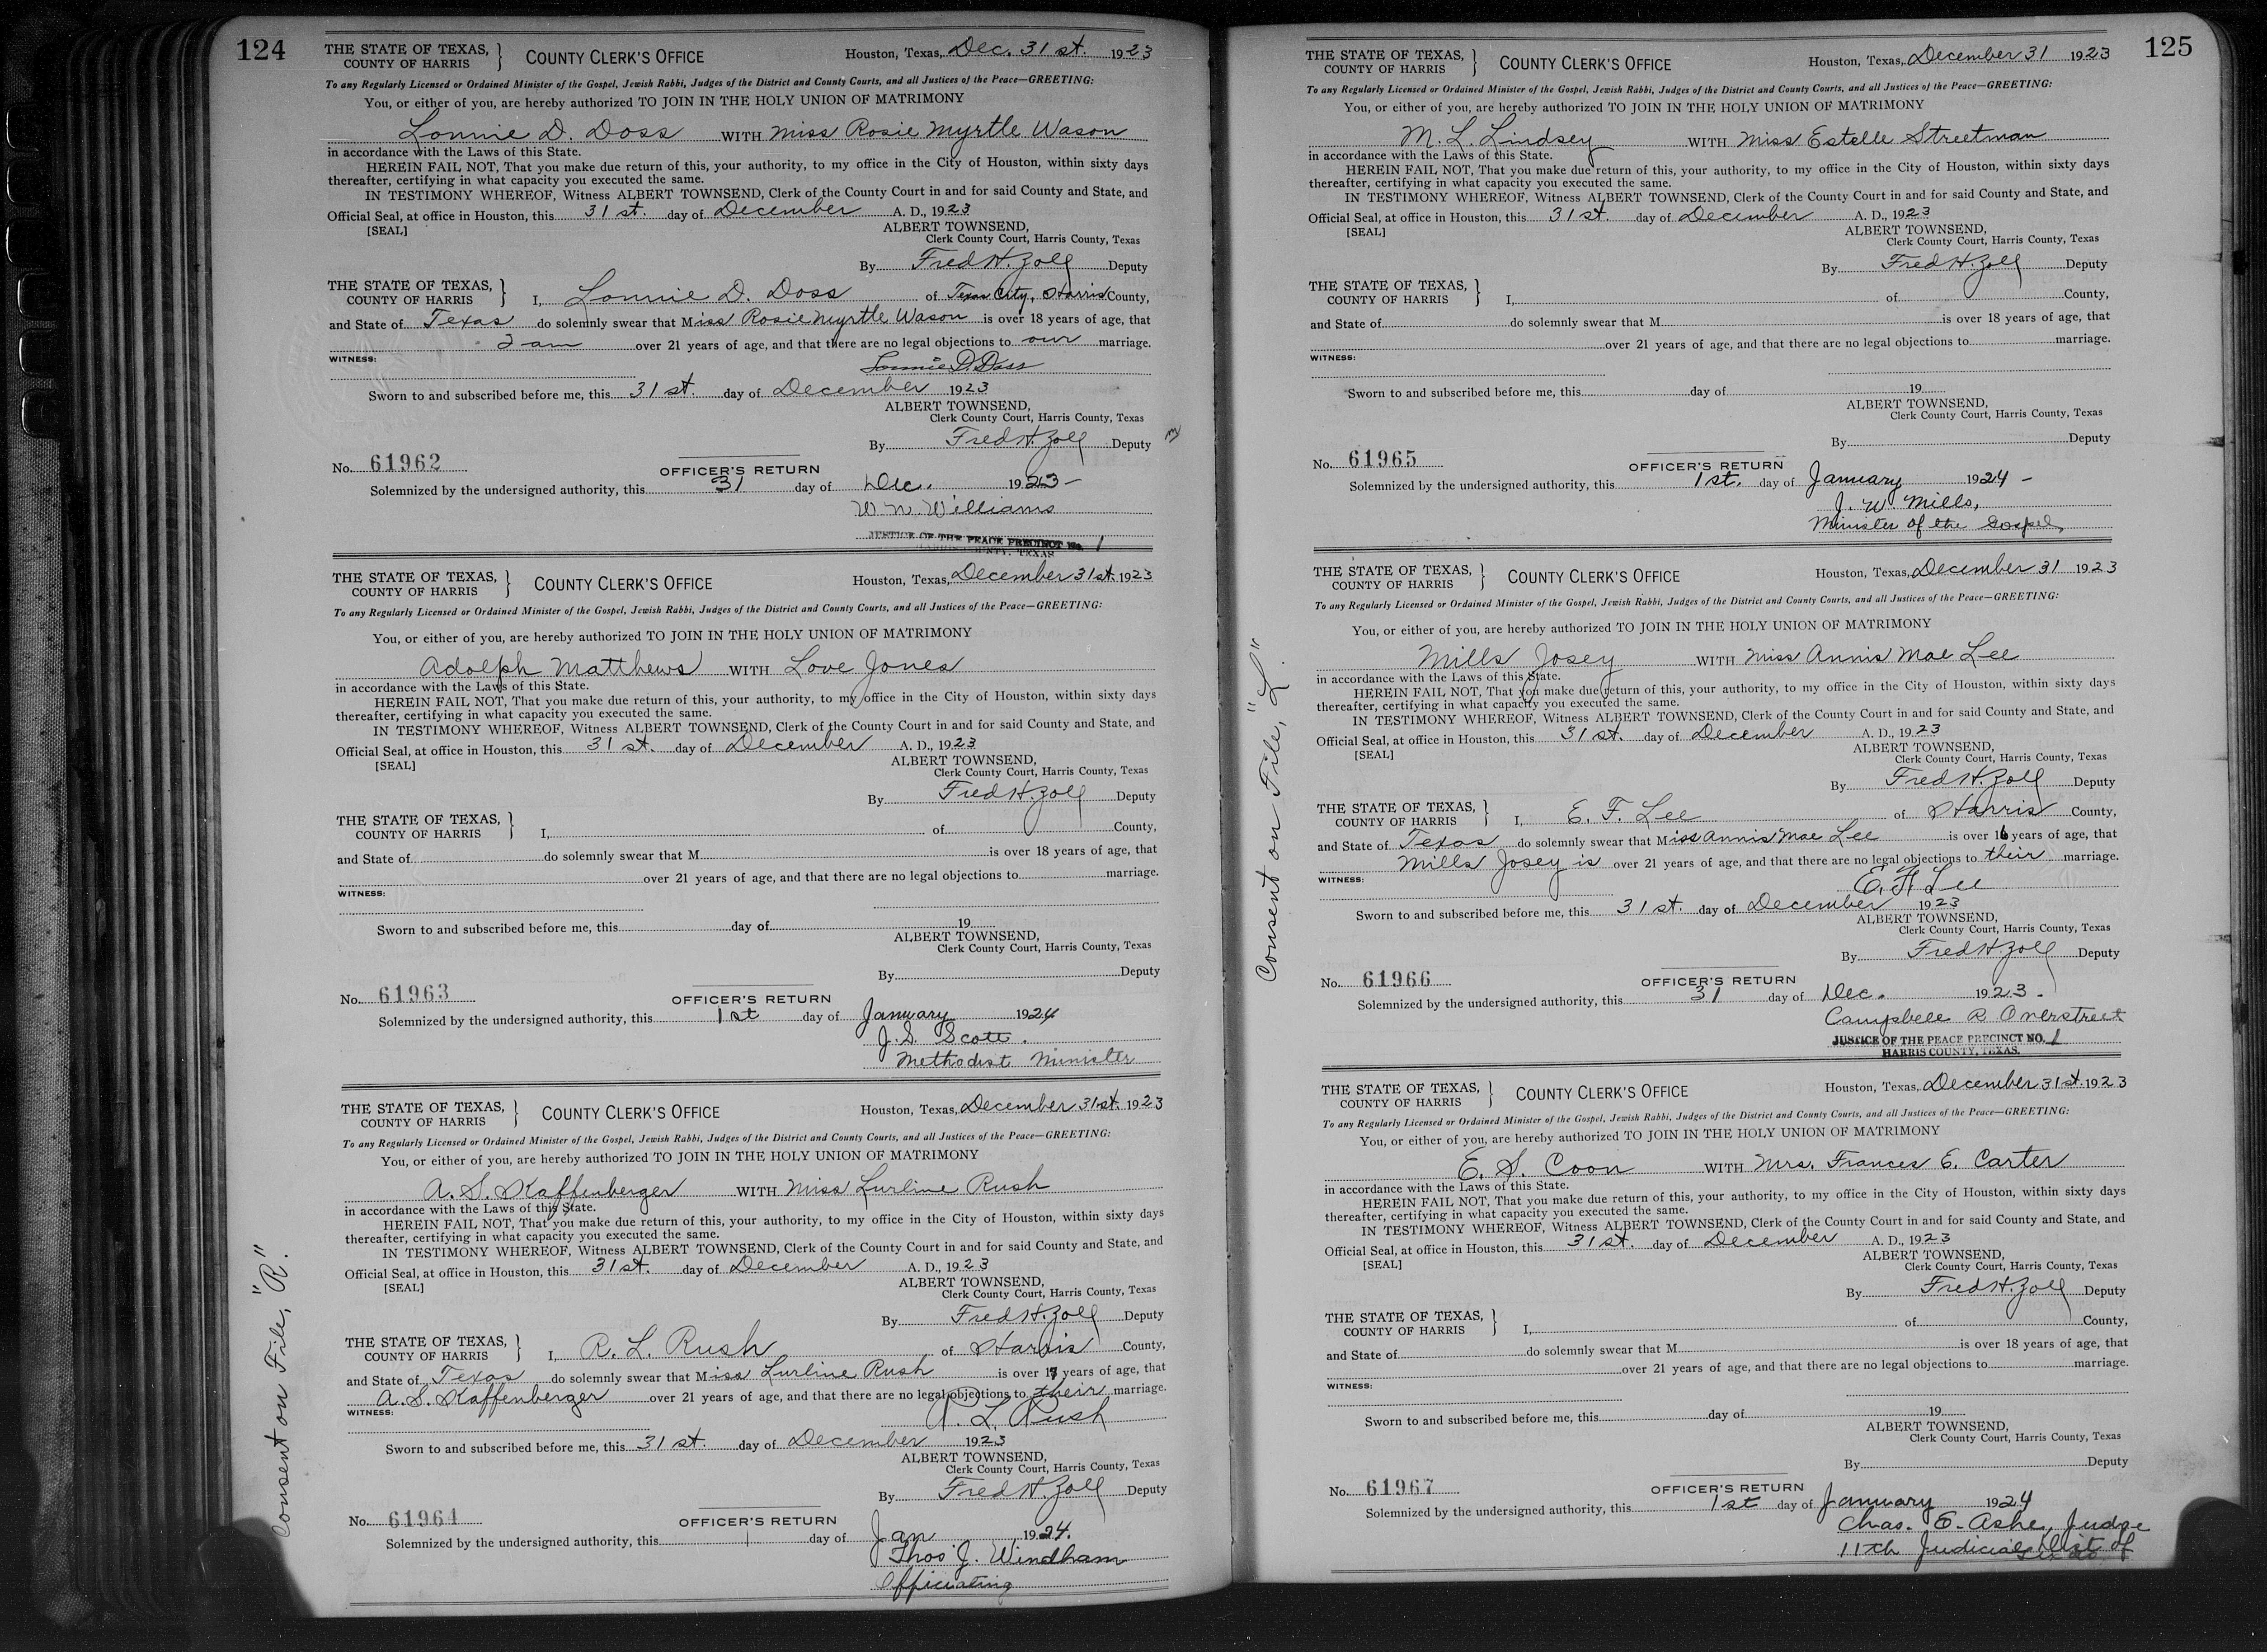 124
THE STATE OF TEXAS, COUNTY OF HARRIS } COUNTY CLERK'S OFFICE Houston, Texas, Dec. 31st. 1923
To any Regularly Licensed or Ordained Minister of the Gospel, Jewish Rabbi, Judges of the District and County Courts, and all Justices of the Peace—GREETING:
You, or either of you, are hereby authorized TO JOIN IN THE HOLY UNION OF MATRIMONY
Lonnie D. Doss WITH Miss Rosie Myrtle Wason
in accordance with the Laws of this State.
HEREIN FAIL NOT, That you make due return of this, your authority, to my office in the City of Houston, within sixty days
thereafter, certifying in what capacity you executed the same.
IN TESTIMONY WHEREOF, Witness ALBERT TOWNSEND, Clerk of the County Court in and for said County and State, and
Official Seal, at office in Houston, this 31st. day of December A. D., 1923
[SEAL] ALBERT TOWNSEND,
Clerk County Court, Harris County, Texas
By Fred H. Zoll Deputy
THE STATE OF TEXAS, COUNTY OF HARRIS } I, Lonnie D. Doss of Texas City, Harris County,
and State of Texas do solemnly swear that Miss Rosie Myrtle Wason is over 18 years of age, that
I am over 21 years of age, and that there are no legal objections to our marriage.
WITNESS: Lonnie D. Doss
Sworn to and subscribed before me, this 31st. day of December 1923
ALBERT TOWNSEND,
Clerk County Court, Harris County, Texas
By Fred H. Zoll Deputy
No. 61962 OFFICER'S RETURN
Solemnized by the undersigned authority, this 31 day of Dec. 1923-
W. N. Williams
JUSTICE OF THE PEACE PRECINCT No. 1
HARRIS COUNTY, TEXAS
THE STATE OF TEXAS, COUNTY OF HARRIS } COUNTY CLERK'S OFFICE Houston, Texas, December 31st. 1923
To any Regularly Licensed or Ordained Minister of the Gospel, Jewish Rabbi, Judges of the District and County Courts, and all Justices of the Peace—GREETING:
You, or either of you, are hereby authorized TO JOIN IN THE HOLY UNION OF MATRIMONY
Adolph Matthews WITH Love Jones
in accordance with the Laws of this State.
HEREIN FAIL NOT, That you make due return of this, your authority, to my office in the City of Houston, within sixty days
thereafter, certifying in what capacity you executed the same.
IN TESTIMONY WHEREOF, Witness ALBERT TOWNSEND, Clerk of the County Court in and for said County and State, and
Official Seal, at office in Houston, this 31st. day of December A. D., 1923
[SEAL] ALBERT TOWNSEND,
Clerk County Court, Harris County, Texas
By Fred H. Zoll Deputy
THE STATE OF TEXAS, COUNTY OF HARRIS } I, of County,
and State of do solemnly swear that M is over 18 years of age, that
over 21 years of age, and that there are no legal objections to marriage.
WITNESS:
Sworn to and subscribed before me, this day of 19
ALBERT TOWNSEND,
Clerk County Court, Harris County, Texas
By Deputy
No. 61963 OFFICER'S RETURN
Solemnized by the undersigned authority, this 1st day of January 1924
J. S. Scott.
Methodist Minister
THE STATE OF TEXAS, COUNTY OF HARRIS } COUNTY CLERK'S OFFICE Houston, Texas, December 31st. 1923
To any Regularly Licensed or Ordained Minister of the Gospel, Jewish Rabbi, Judges of the District and County Courts, and all Justices of the Peace—GREETING:
You, or either of you, are hereby authorized TO JOIN IN THE HOLY UNION OF MATRIMONY
A. S. Kaffenberger WITH Miss Lurline Rush
in accordance with the Laws of this State.
HEREIN FAIL NOT, That you make due return of this, your authority, to my office in the City of Houston, within sixty days
thereafter, certifying in what capacity you executed the same.
IN TESTIMONY WHEREOF, Witness ALBERT TOWNSEND, Clerk of the County Court in and for said County and State, and
Official Seal, at office in Houston, this 31st. day of December A. D., 1923
[SEAL] ALBERT TOWNSEND,
Clerk County Court, Harris County, Texas
By Fred H. Zoll Deputy
THE STATE OF TEXAS, COUNTY OF HARRIS } I, R. L. Rush of Harris County,
and State of Texas do solemnly swear that Miss Lurline Rush is over 17 years of age, that
A. S. Kaffenberger over 21 years of age, and that there are no legal objections to their marriage.
WITNESS: R. L. Rush
Sworn to and subscribed before me, this 31st. day of December 1923
ALBERT TOWNSEND,
Clerk County Court, Harris County, Texas
By Fred H. Zoll Deputy
No. 61964 OFFICER'S RETURN
Solemnized by the undersigned authority, this 1 day of Jan 1924.
Thos J. Windham
Officiating
Consent on File, "R."
125
THE STATE OF TEXAS, COUNTY OF HARRIS } COUNTY CLERK'S OFFICE Houston, Texas, December 31 1923
To any Regularly Licensed or Ordained Minister of the Gospel, Jewish Rabbi, Judges of the District and County Courts, and all Justices of the Peace—GREETING:
You, or either of you, are hereby authorized TO JOIN IN THE HOLY UNION OF MATRIMONY
M. L. Lindsey WITH Miss Estelle Streetman
in accordance with the Laws of this State.
HEREIN FAIL NOT, That you make due return of this, your authority, to my office in the City of Houston, within sixty days
thereafter, certifying in what capacity you executed the same.
IN TESTIMONY WHEREOF, Witness ALBERT TOWNSEND, Clerk of the County Court in and for said County and State, and
Official Seal, at office in Houston, this 31st. day of December A. D., 1923
[SEAL] ALBERT TOWNSEND,
Clerk County Court, Harris County, Texas
By Fred H. Zoll Deputy
THE STATE OF TEXAS, COUNTY OF HARRIS } I, of County,
and State of do solemnly swear that M is over 18 years of age, that
over 21 years of age, and that there are no legal objections to marriage.
WITNESS:
Sworn to and subscribed before me, this day of 19
ALBERT TOWNSEND,
Clerk County Court, Harris County, Texas
By Deputy
No. 61965 OFFICER'S RETURN
Solemnized by the undersigned authority, this 1st. day of January 1924 -
J. W. Mills,
Minister of the Gospel,
THE STATE OF TEXAS, COUNTY OF HARRIS } COUNTY CLERK'S OFFICE Houston, Texas, December 31 1923
To any Regularly Licensed or Ordained Minister of the Gospel, Jewish Rabbi, Judges of the District and County Courts, and all Justices of the Peace—GREETING:
You, or either of you, are hereby authorized TO JOIN IN THE HOLY UNION OF MATRIMONY
Mills Josey WITH Miss Annis Mae Lee
in accordance with the Laws of this State.
HEREIN FAIL NOT, That you make due return of this, your authority, to my office in the City of Houston, within sixty days
thereafter, certifying in what capacity you executed the same.
IN TESTIMONY WHEREOF, Witness ALBERT TOWNSEND, Clerk of the County Court in and for said County and State, and
Official Seal, at office in Houston, this 31st. day of December A. D., 1923
[SEAL] ALBERT TOWNSEND,
Clerk County Court, Harris County, Texas
By Fred H. Zoll Deputy
THE STATE OF TEXAS, COUNTY OF HARRIS } I, E. F. Lee of Harris County,
and State of Texas do solemnly swear that Miss Annis Mae Lee is over 16 years of age, that
Mills Josey is over 21 years of age, and that there are no legal objections to their marriage.
WITNESS: E. F. Lee
Sworn to and subscribed before me, this 31st. day of December 1923
ALBERT TOWNSEND,
Clerk County Court, Harris County, Texas
By Fred H Zoll Deputy
No. 61966 OFFICER'S RETURN
Solemnized by the undersigned authority, this 31 day of Dec. 1923.
Campbell R Overstreet
JUSTICE OF THE PEACE PRECINCT NO. 1
HARRIS COUNTY, TEXAS.
Consent on File, "L."
THE STATE OF TEXAS, COUNTY OF HARRIS } COUNTY CLERK'S OFFICE Houston, Texas, December 31st. 1923
To any Regularly Licensed or Ordained Minister of the Gospel, Jewish Rabbi, Judges of the District and County Courts, and all Justices of the Peace—GREETING:
You, or either of you, are hereby authorized TO JOIN IN THE HOLY UNION OF MATRIMONY
E. S. Coon WITH Mrs. Frances E. Carter
in accordance with the Laws of this State.
HEREIN FAIL NOT, That you make due return of this, your authority, to my office in the City of Houston, within sixty days
thereafter, certifying in what capacity you executed the same.
IN TESTIMONY WHEREOF, Witness ALBERT TOWNSEND, Clerk of the County Court in and for said County and State, and
Official Seal, at office in Houston, this 31st. day of December A. D., 1923
[SEAL] ALBERT TOWNSEND,
Clerk County Court, Harris County, Texas
By Fred H. Zoll Deputy
THE STATE OF TEXAS, COUNTY OF HARRIS } I, of County,
and State of do solemnly swear that M is over 18 years of age, that
over 21 years of age, and that there are no legal objections to marriage.
WITNESS:
Sworn to and subscribed before me, this day of 19
ALBERT TOWNSEND,
Clerk County Court, Harris County, Texas
By Deputy
No. 61967 OFFICER'S RETURN
Solemnized by the undersigned authority, this 1st day of January 1924
Chas. E. Ashe, Judge
11th Judicial Dist of